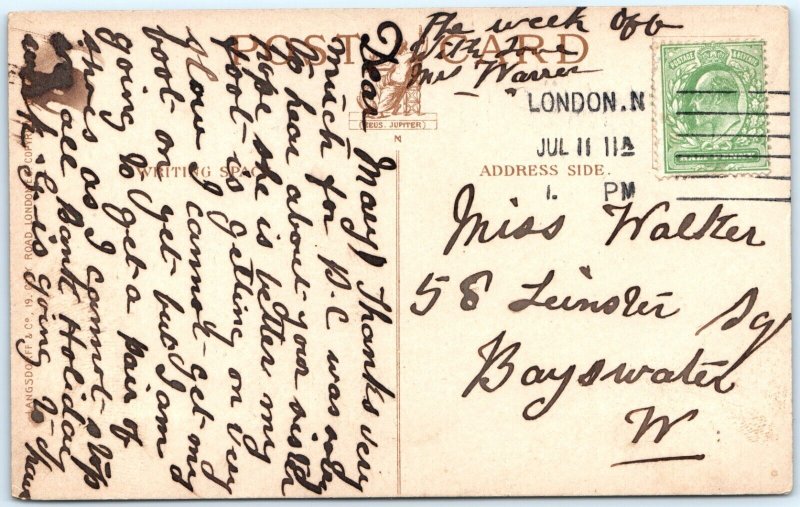 POST CARD
(ZEUS, JUPITER)
N
WRITING SPAC
ADDRESS SIDE.
LANGSDORFF & Co, 19, ROAD, LONDON
LONDON.N
JUL 11 11A
1. PM
POSTAGE REVENUE
Miss Walker
58 Leinster Sq
Bayswater
W
Dear Mary Thanks very
much for P.C was sorry
to hear about your sister
hope she is better my
foot is getting on very
slow I cannot get my
boot on yet but I am
going to get a pair of
shoes as I cannot stop
in all Bank Holiday
and is going to have
the week off
With Love
Mrs Warren